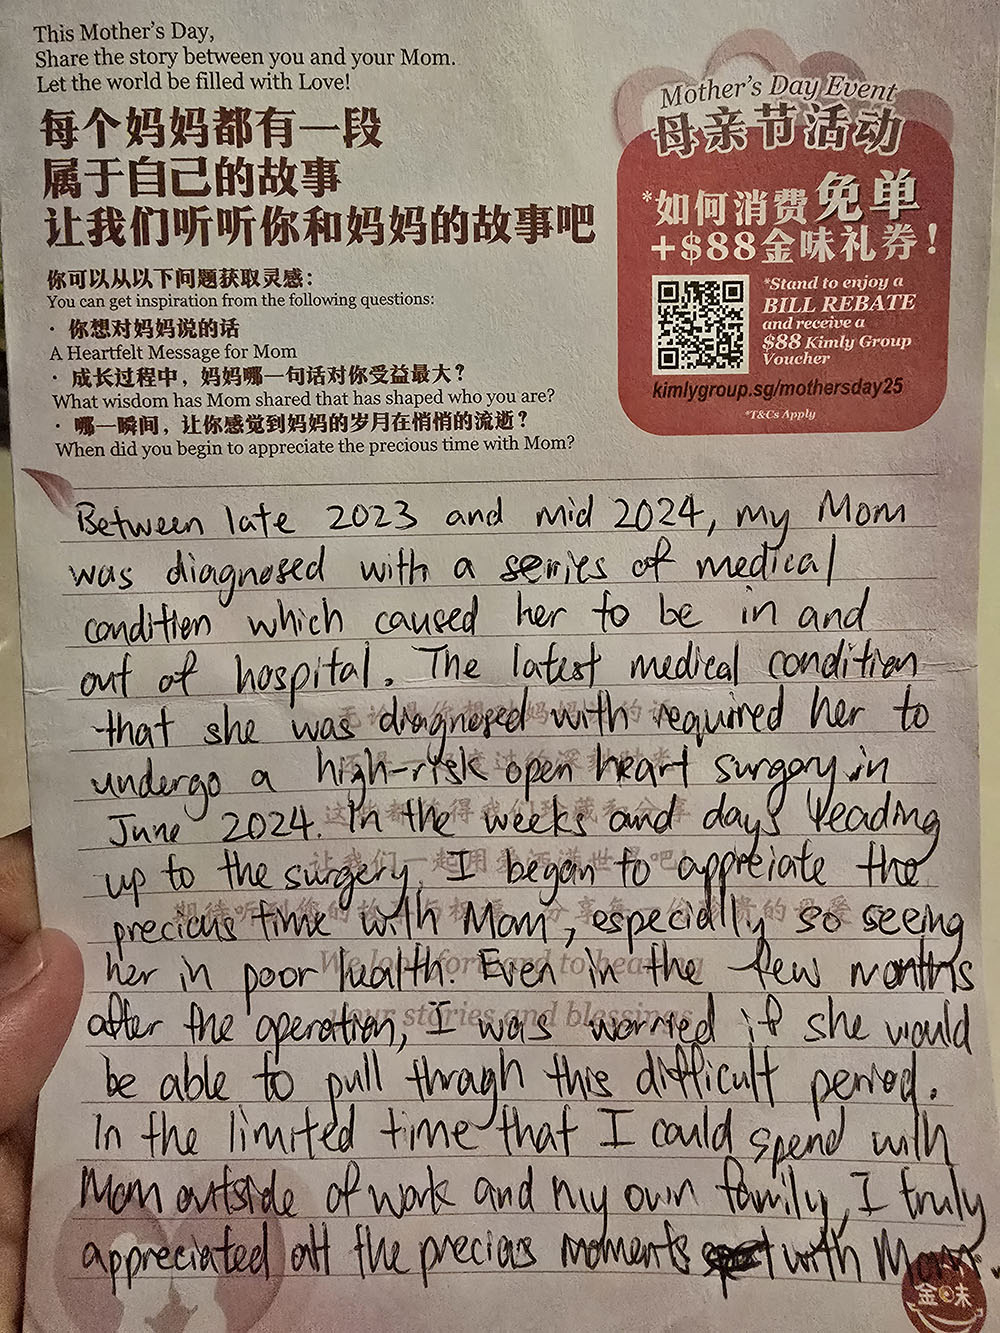 This Mother's Day,
Share the story between you and your Mom.
Let the world be filled with Love!
每个妈妈都有一段
属于自己的故事
让我们听听你和妈妈的故事吧
你可以从以下问题获取灵感：
You can get inspiration from the following questions:
· 你想对妈妈说的话
A Heartfelt Message for Mom
· 成长过程中，妈妈哪一句话对你受益最大？
What wisdom has Mom shared that has shaped who you are?
· 哪一瞬间，让你感觉到妈妈的岁月在悄悄的流逝？
When did you begin to appreciate the precious time with Mom?
Mother's Day Event
母亲节活动
*如何消费免单
+$88金味礼券！
*Stand to enjoy a
BILL REBATE
and receive a
$88 Kimly Group
Voucher
kimlygroup.sg/mothersday25
*T&Cs Apply
Between late 2023 and mid 2024, my Mom
was diagnosed with a series of medical
condition which caused her to be in and
out of hospital. The latest medical condition
that she was diagnosed with required her to
undergo a high-risk open heart surgery in
June 2024. In the weeks and days leading
up to the surgery, I began to appreciate the
precious time with Mom, especially so seeing
her in poor health. Even in the few months
after the operation, I was worried if she would
be able to pull through this difficult period.
In the limited time that I could spend with
Mom outside of work and my own family, I truly
appreciated all the precious moments with Mom.
这些都值得我们珍藏和分享
让我们一起用爱洒满世界吧！
We look forward to hearing
your stories and blessings
金味